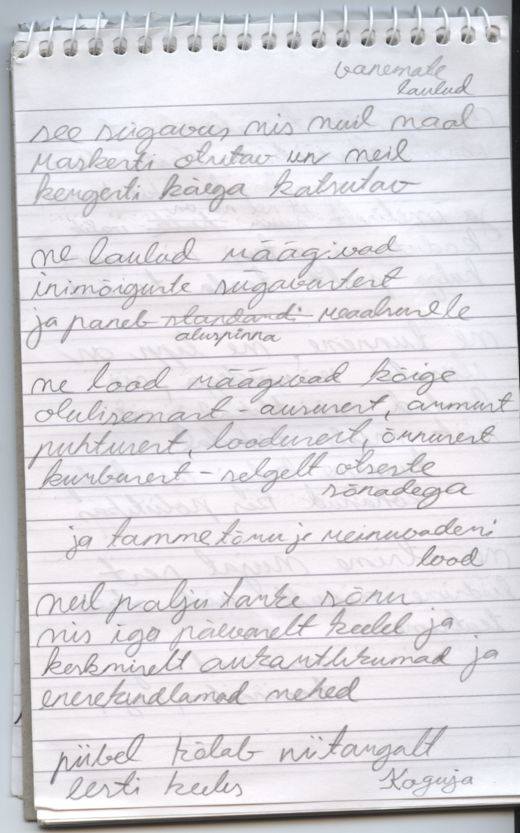 vanemate
laulud
see sügavus mis muil maal
raskesti otsitav on neil
kergesti käega katsutav
me laulud räägivad
inimõiguste sügavustest
ja paneb standardi reaalsusele
aluspinna
me lood räägivad kõige
olulisemast - aususest, armust
puhtusest, loodusest, õnnusest
kurbusest - selgelt otseste
sõnadega
ja tammetõru ja
lood
meil palju tarku sõnu
mis iga päevaselt keelel ja
keskmiselt ja
enesekindlamad mehed
piibel kõlab niitangalt
eesti keeles
Koguja